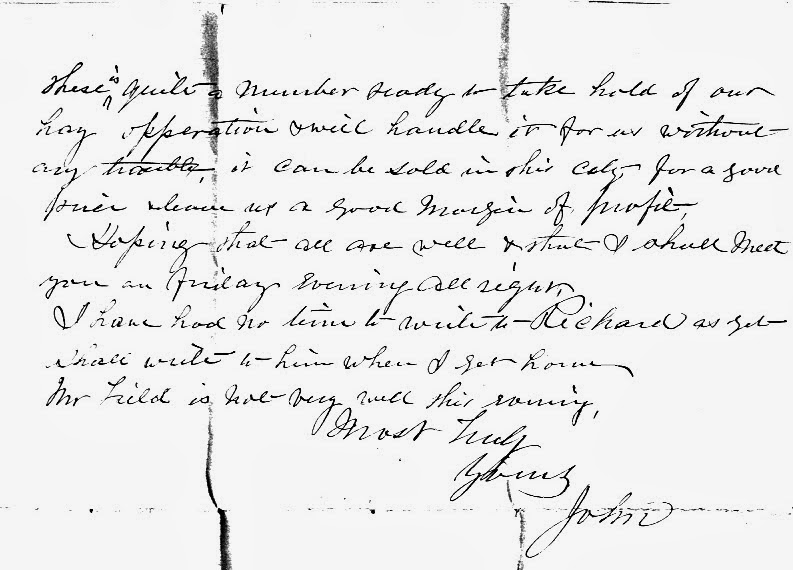 these is quite a number ready to take hold of our
hay opperation & will handle it for us without
any trouble, it can be sold in this city for a good
price & leave us a good margin of profit,
Hoping that all are well & that I shall meet
you on Friday evening all right,
I have had no time to write to Richard as yet
shall write to him when I get home
Mr Field is not very well this evening,
Most Truly
Yours
John